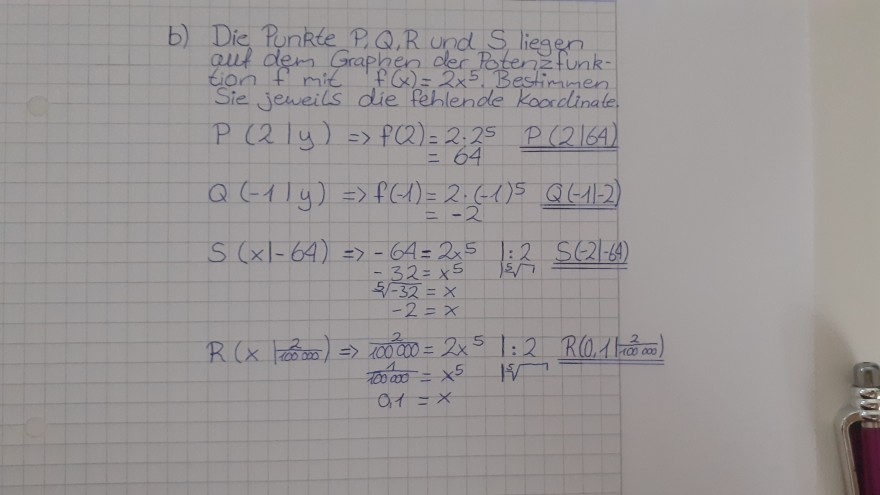 b) Die Punkte P, Q, R und S liegen
auf dem Graphen der Potenzfunk-
tion f mit f(x) = 2x⁵. Bestimmen
Sie jeweils die fehlende Koordinate.
P (2 | y) => f(2) = 2·2⁵ P (2|64)
= 64
Q (-1 | y) => f(-1) = 2·(-1)⁵ Q(-1|-2)
= -2
S (x|-64) => -64 = 2x⁵ |:2 S(-2|-64)
-32 = x⁵ |⁵√
⁵√-32 = x
-2 = x
R (x | 2/100 000) => 2/100 000 = 2x⁵ |:2 R(0,1|2/100 000)
1/100 000 = x⁵ |⁵√
0,1 = x